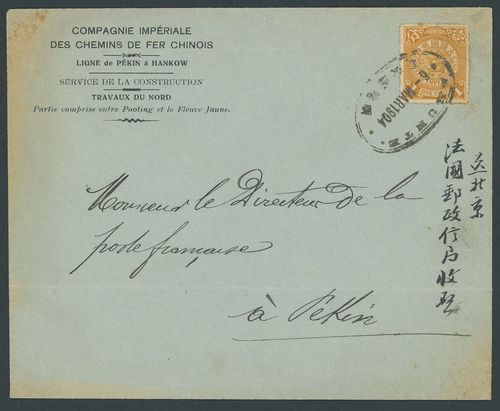 COMPAGNIE IMPÉRIALE
DES CHEMINS DE FER CHINOIS
LIGNE de PÉKIN à HANKOW
SERVICE DE LA CONSTRUCTION
TRAVAUX DU NORD
Partie comprise entre Paoting et le Fleuve Jaune.
MAR 1904
Monsieur le Directeur de la
poste française
à Pékin
送北京
法國郵政信局收